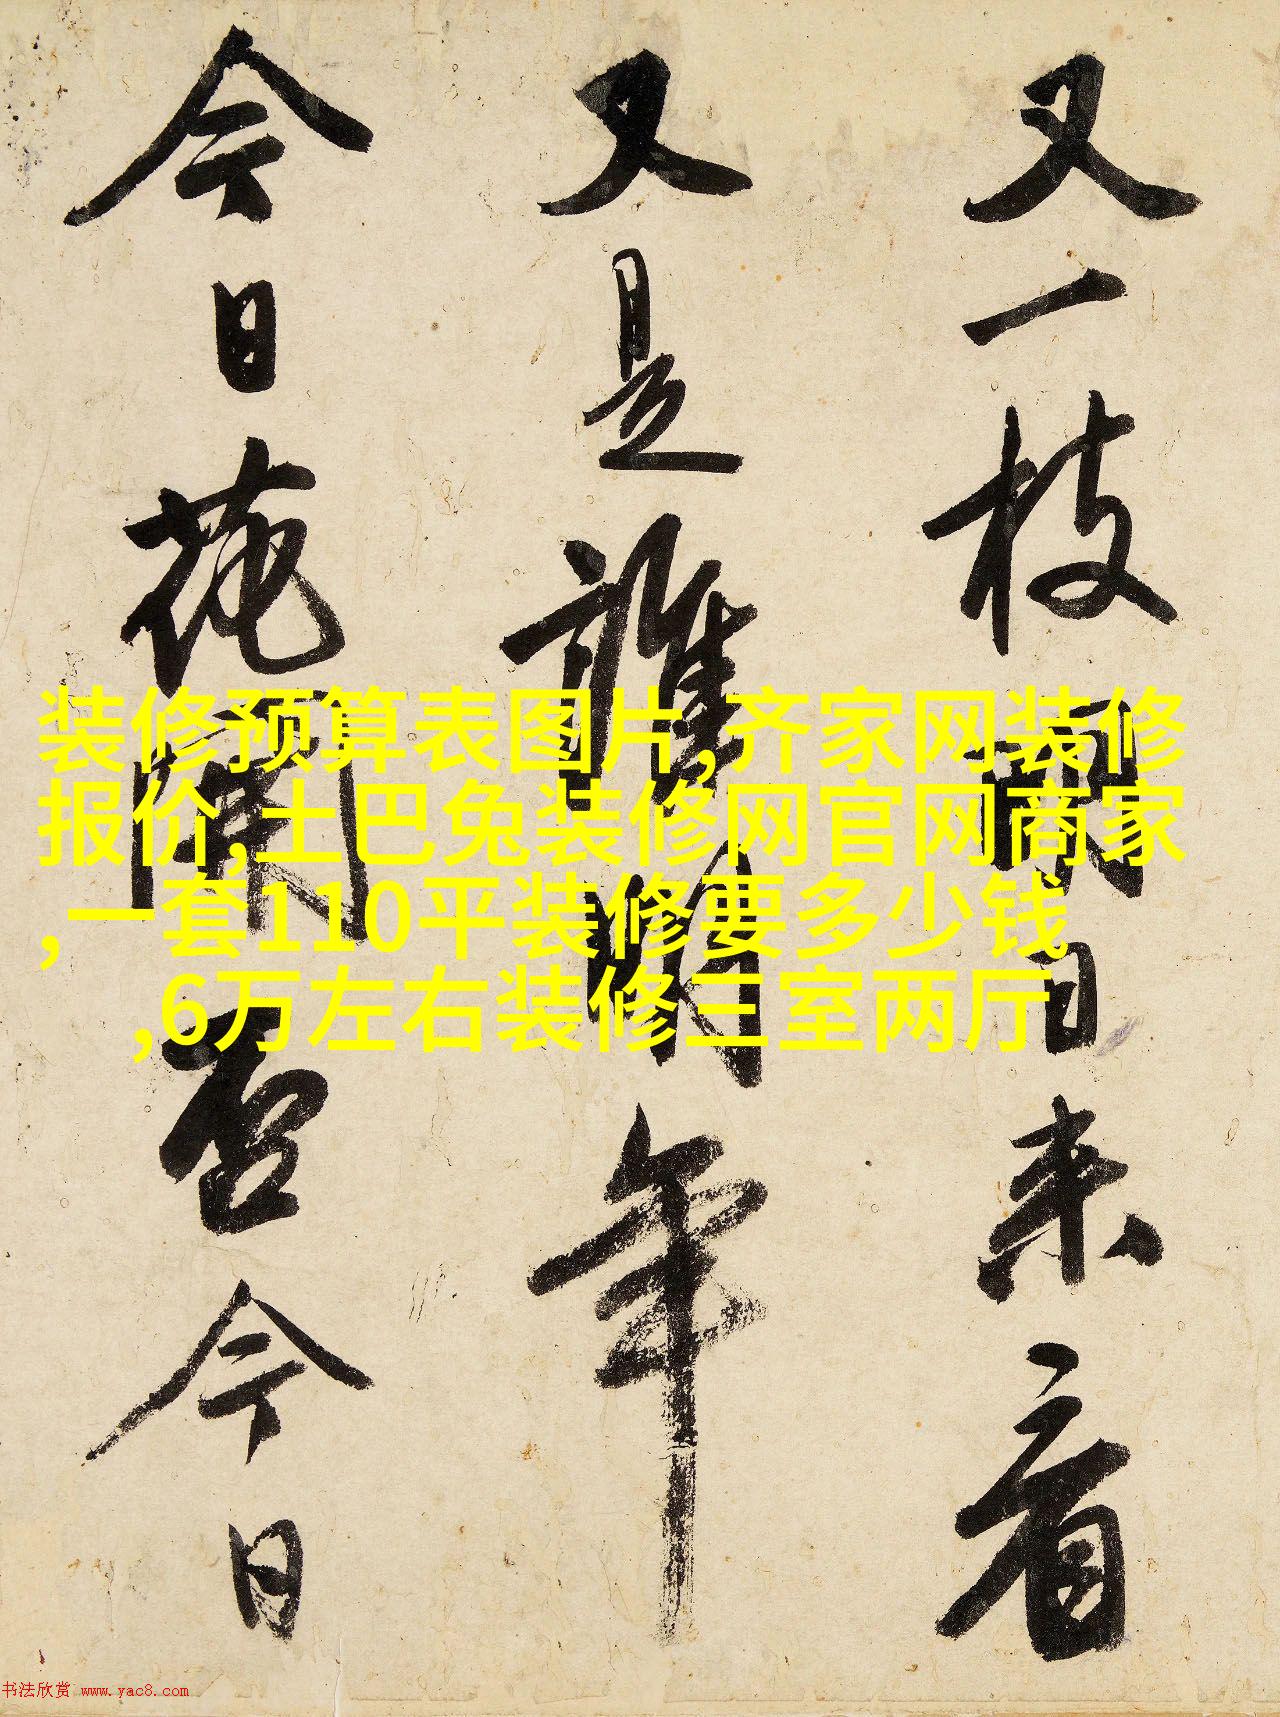 又一枝明日来看
又是誰明年
今日花開否今日
装修预算表图片,齐家网装修
报价,土巴兔装修网官网商家
,一套110平装修要多少钱
,6万左右装修三室两厅
书法欣赏 www.yac8.com